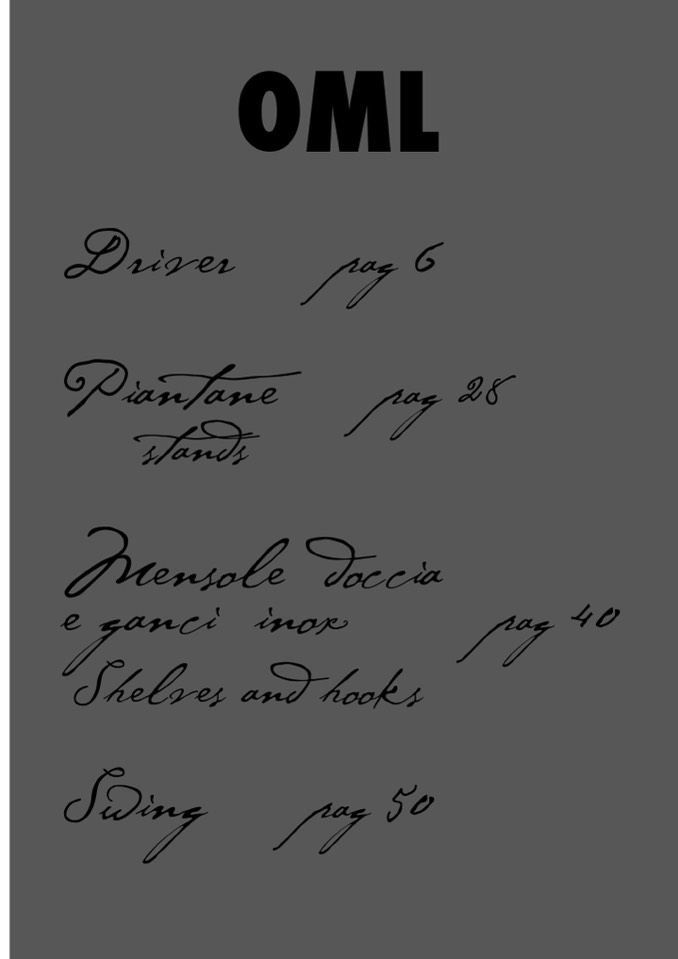 OML
Driver pag 6
Piantane pag 28
stands
Mensole doccia
e ganci inox pag 40
Shelves and hooks
Swing pag 50